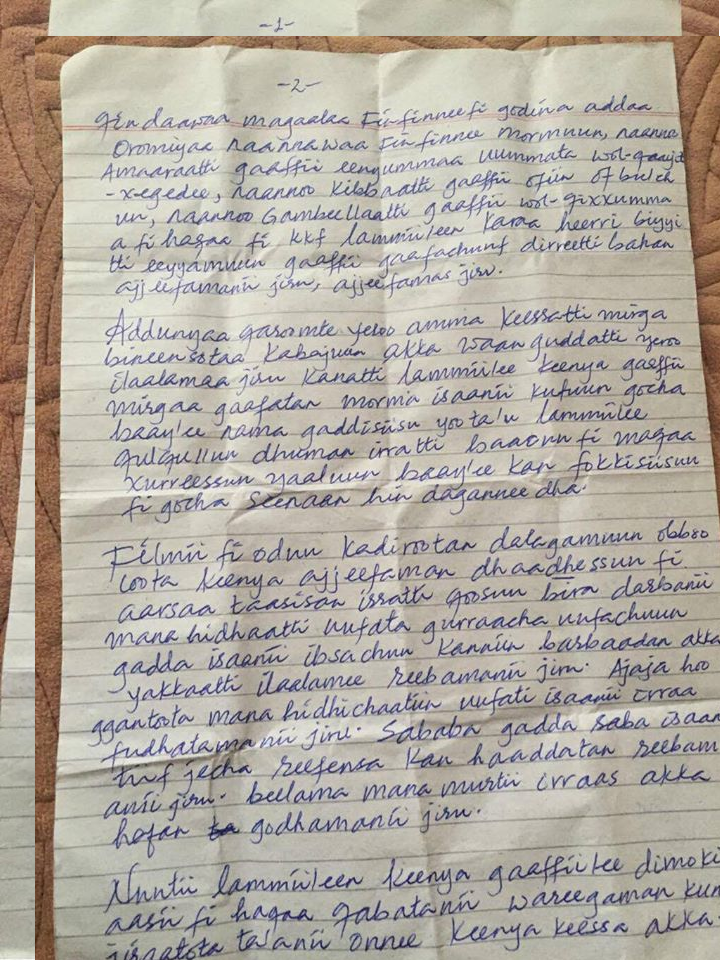 -1-
-2-
Qindaawaa magaalaa Finfinneefi godina addaa
Oromiyaa naannawaa Finfinnee mormuun, naannoo
Amaaraatti gaaffii eenyummaa uummata wol-qaayit
-xegedee, naannoo Kibbaatti gaaffii ofiin of bulch
un, naannoo Gambellaatti gaaffii wol-qixxumma
a fi haqaa fi kkf lammiileen karaa heerri biyyi
tti eeyyamuun gaaffii gaafachuuf dirreetti bahan
ajjeefamanii jiru, ajjeefamas jiru.
Addunyaa qaroomte yeroo amma keessatti mirga
bineensotaa kabajuun akka waan guddatti yeroo
ilaalamaa jiru kanatti lammiilee keenya gaaffii
mirgaa gaafatan morma isaanii kutuun gocha
baay'ee nama gaddisiisu yoo ta'u lammiilee
qulqulluu dhuman irratti baacuu fi maqaa
xurreessuu yaaluun baay'ee kan fokkisiisuu
fi gocha seenaan hin dagannee dha.
Fiilmii fi oduu kadirootan dalagamuun obboo
loota keenya ajjeefaman dhaadhessuu fi
aarsaa taasisan irratti qoosuu bira darbanii
mana hidhaatti uufata gurraacha uufachuun
gadda isaanii ibsachuu kanniin barbaadan akka
yakkaatti ilaalamee reebamanii jiru. Ajaja hoo
ggantoota mana hidhichaatiin uufati isaanii irraa
fudhatamanii jiru. Sababa gadda saba isaan
tiif jecha rifeensa kan haaddatan reebam
anii jiru. beellama mana murtii irraas akka
hafan godhamanii jiru.
Nuutii lammiileen keenya gaaffiilee dimoki
aasii fi haqaa qabatanii wareegaman kun
jiraatota ta'anii onnee keenya keessa akka